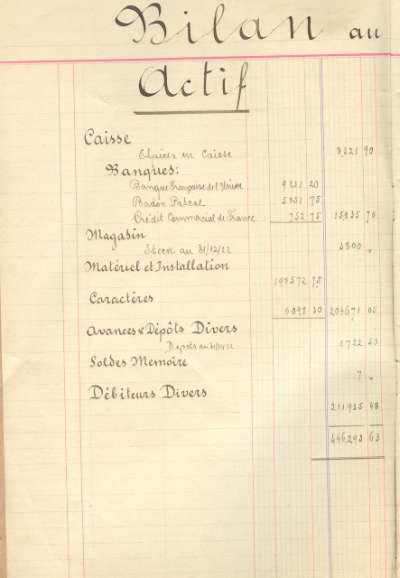 Bilan au
Actif
Caisse
Espèces en Caisse 3,221 90
Banques:
Banque Française de l'Union 9211 20
Badon Pascal 5851 75
Crédit Commercial de France 752 75 15,835 70
Magasin
Stock au 31/12/22 4300 "
Matériel et Installation
197572 75
Caractères
6098 30 203671 05
Avances & Dépôts Divers
Dépôts au 31/12/22 1722 50
Soldes Memoire
7 "
Débiteurs Divers
211,935 48
446293 63